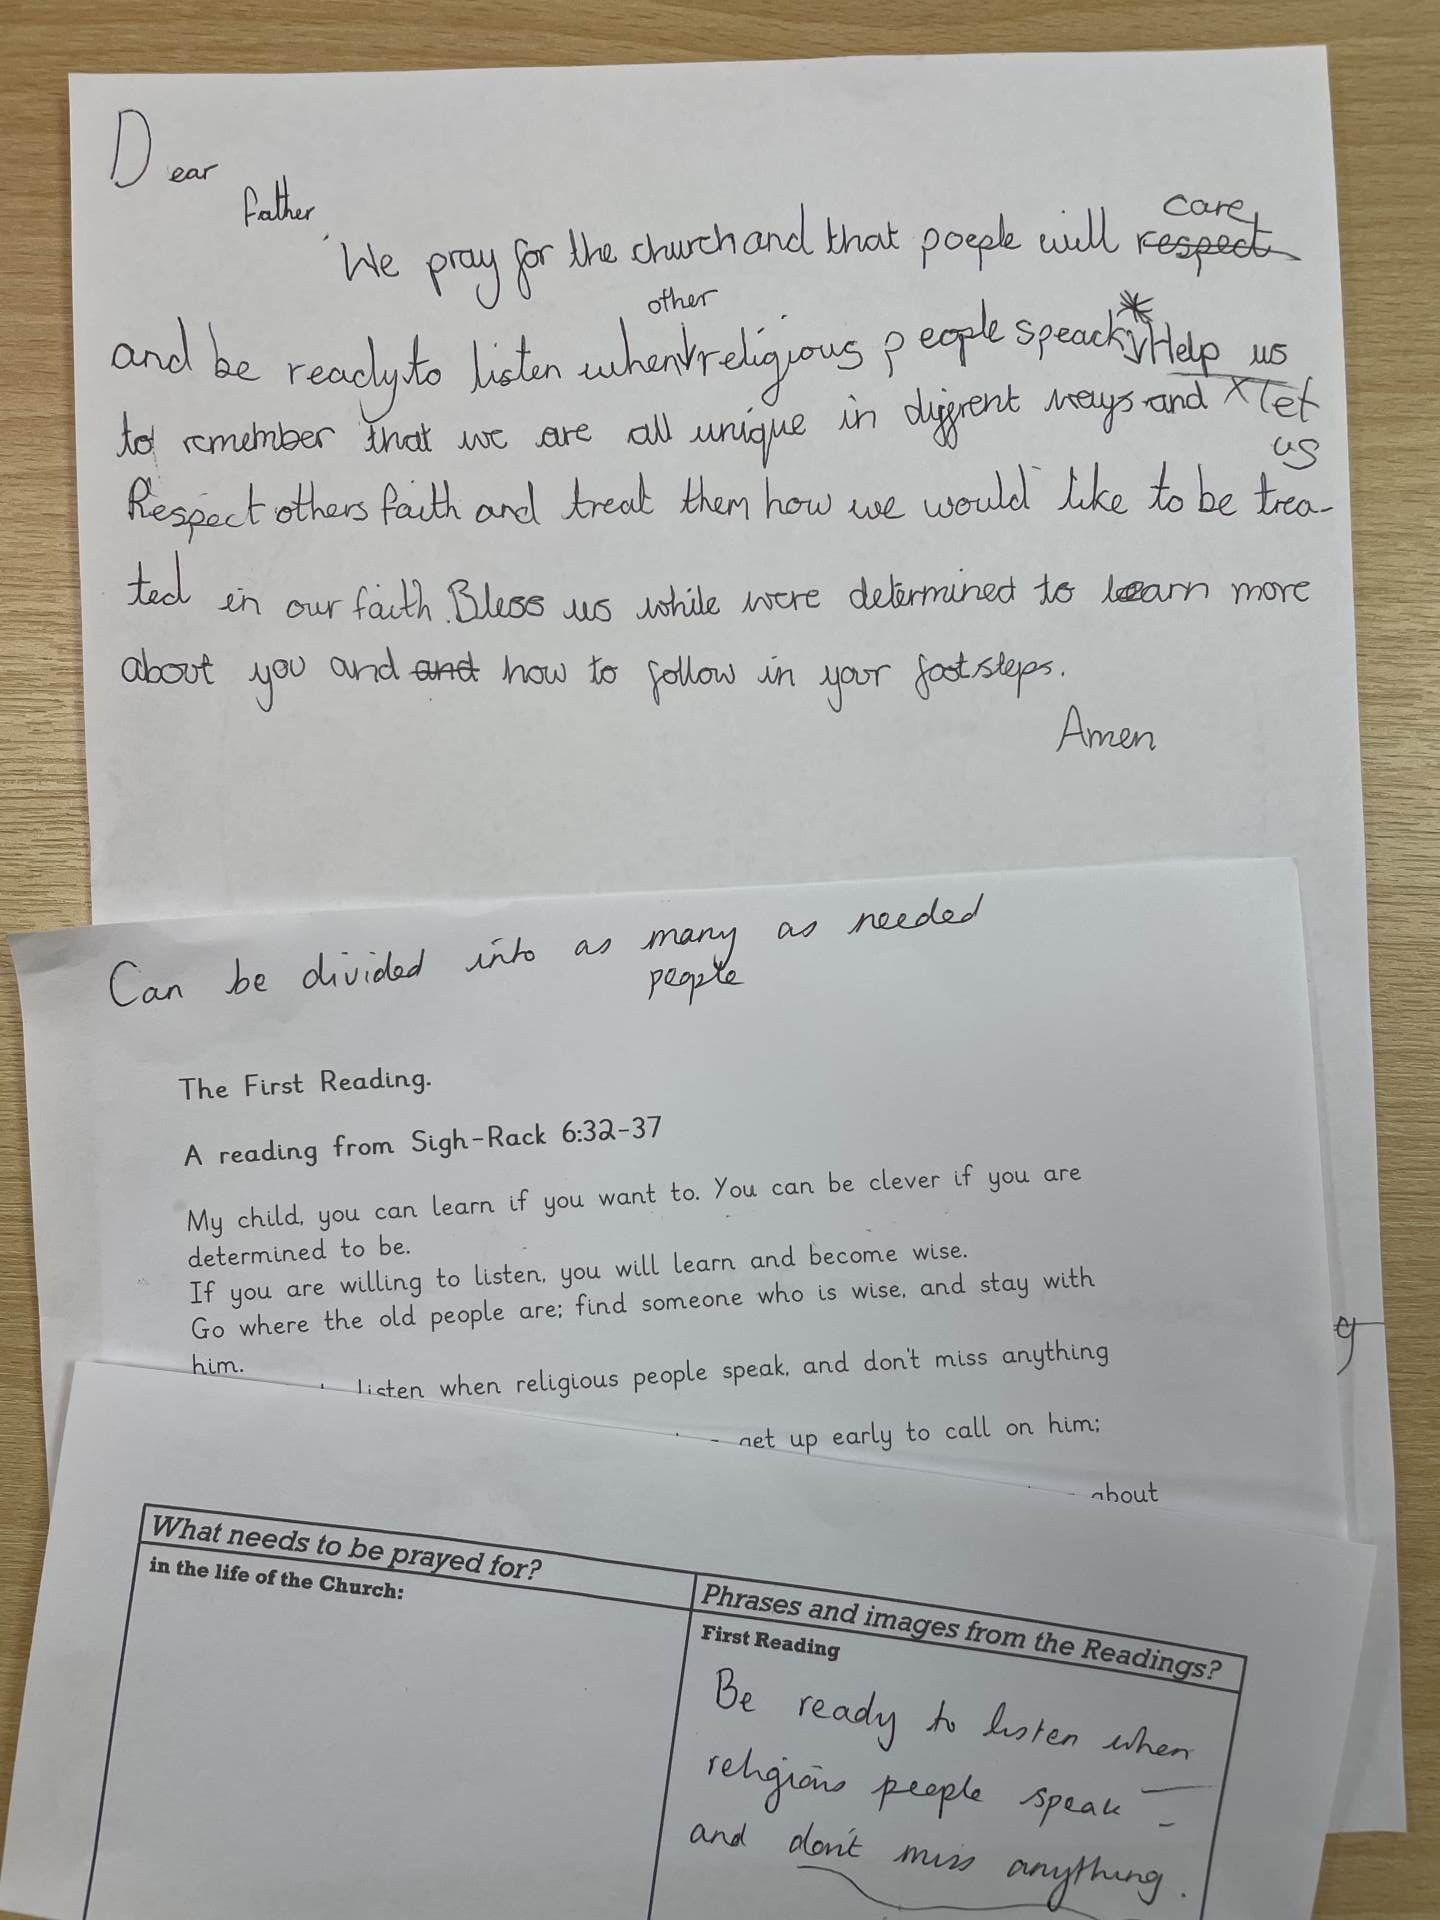 Dear
father,
We pray for the church and that poeple will respect care,
and be ready to listen when other religious people speack * Help us
to remember that we are all unique in diffrent ways and x let us
Respect others faith and treat them how we would like to be trea-
ted in our faith. Bless us while were determined to learn more
about you and and how to follow in your footsteps.
Amen
Can be divided into as many as needed
people
The First Reading.
A reading from Sigh-Rack 6:32-37
My child, you can learn if you want to. You can be clever if you are
determined to be.
If you are willing to listen, you will learn and become wise.
Go where the old people are; find someone who is wise, and stay with
him.
listen when religious people speak, and don't miss anything
get up early to call on him;
about
What needs to be prayed for?
in the life of the Church:
Phrases and images from the Readings?
First Reading
Be ready to listen when
religious people speak -
and don't miss anything.